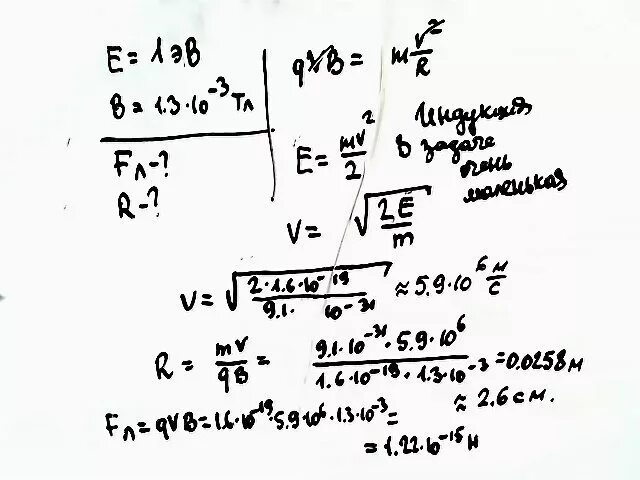 E = 1 эВ
B = 1.3·10⁻³ Тл
Fл - ?
R - ?
qVB = m V²/R
E = mV²/2
Индукция
в задаче
очень
маленькая
V = √(2E/m)
V = √(2·1.6·10⁻¹⁹ / 9.1· 10⁻³¹) ≈ 5.9·10⁶ м/с
R = mV/qB = 9.1·10⁻³¹·5.9·10⁶ / 1.6·10⁻¹⁹·1.3·10⁻³ = 0.0258 м
≈ 2.6 см.
Fл = qVB = 1.6·10⁻¹⁹·5.9·10⁶·1.3·10⁻³ =
= 1.22·10⁻¹⁵ Н